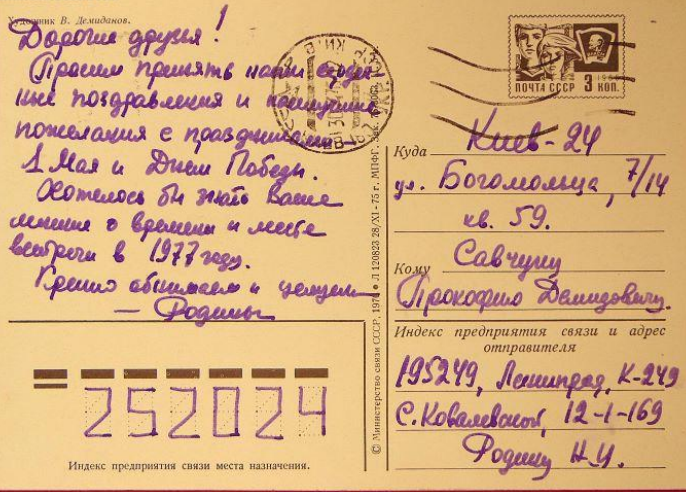 Художник В. Демиданов.
Дорогие друзья!
Просим принять наши сердеч-
ные поздравления и наилучшие
пожелания с праздниками
1 Мая и Днем Победы.
Хотелось бы знать Ваше
мнение о времени и месте
встречи в 1977 году.
Крепко обнимаем и целуем
— Родины
252024
Индекс предприятия связи места назначения.
© Министерство связи СССР, 1976 Л 120823 28/XI-75 г. МПФГ. Зак.
ПОЧТА СССР 3 КОП.
Куда Киев-24
ул. Богомольца, 7/14
кв. 59.
Кому Савчуку
Прокофию Демидовичу.
Индекс предприятия связи и адрес
отправителя
195249, Ленинград, К-249
С. Ковалевской, 12-1-169
Родину Н.И.